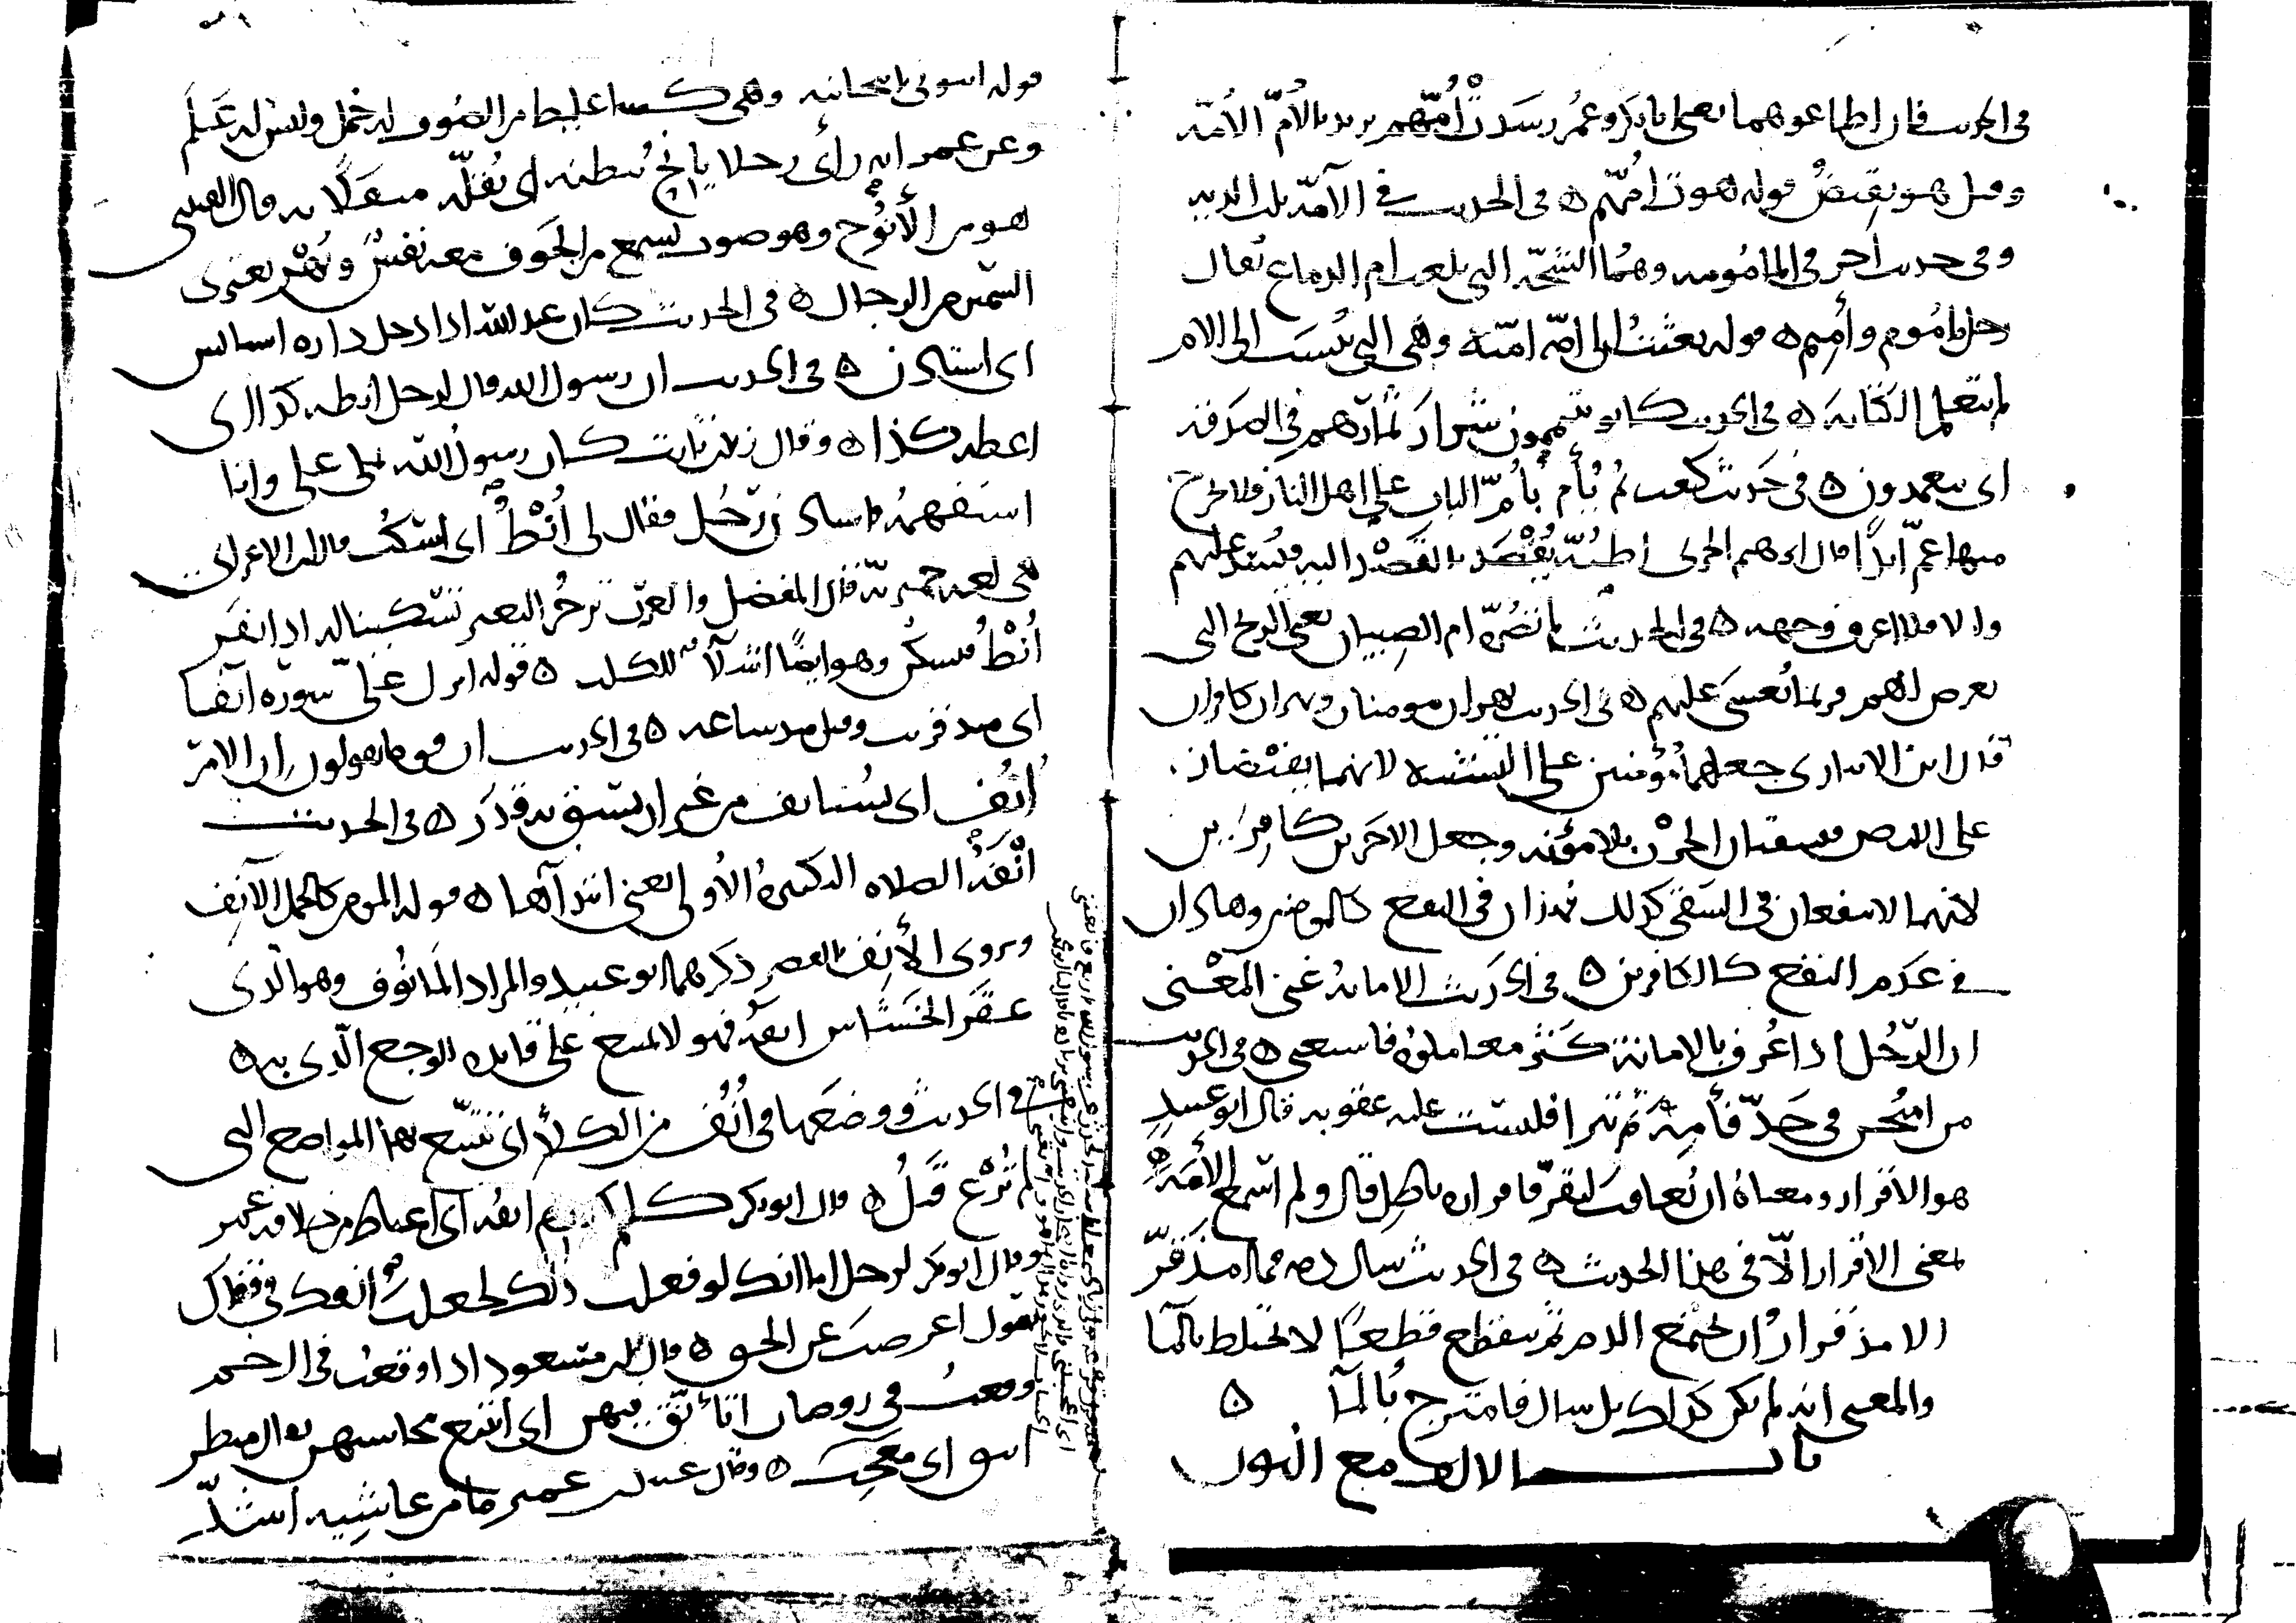 في الحديث فان اطاعوهما يعني ابا بكر وعمر رشدت أمهم يريد بالأم الأمة
وقيل هو نقيض قوله هوت أمهم ه في الحديث في الآمة ثلث الدية
وفي حديث آخر في المأمومة وهما الشجة التي بلغت ام الدماغ يقال
رجل مأموم وأميم ه قوله بعثت الى امة امية وهي التي نسبت الى الام
لم تتعلم الكتابة ه في الحديث كانوا يتيممون شرار ثمارهم في الصدقة
اي يتعمدون ه في حديث كعب ثم يؤم بأم الباب على اهل النار فلا يخرج
منها غم ابدا قال ابرهيم الحربي اظنه يقصد بالقصد اليه فيسد عليهم
والا فلا اعرف وجهه ه في الحديث لم تضره ام الصبيان يعني الريح التي
تعرض لهم فربما يغشى عليهم ه في الحديث نهران مومنان ونهران كافران
قال ابن الانباري جعلهما مؤمنين على التشبيه لانهما يفيضان
على الارض فيسقيان الحرث بلا مؤنة وجعل الاخرين كافرين
لانهما لا ينفعان في السقي كذلك فهذان في النفع كالمومنين وهاذان
في عدم النفع كالكافرين ه في الحديث الامانة غنى المعنى
ان الرجل اذا عرف بالامانة كثر معاملوه فاستغنى ه في الحديث
من امتحن في حد فأمه ثم تبرأ فليست عليه عقوبة قال ابو عبيد
هو الاقرار ومعناه ان يعاقب ليقر فاقراره باطل قال ولم اسمع الأمه
بمعنى الاقرار الا في هذا الحديث ه في الحديث سال دمه فما امذقر
الامذقرار ان يجتمع الدم ثم يتقطع قطعا لا يختلط بالماء
والمعنى انه لم يكن كذلك بل سال فامتزج بالماء ه
باب الالف مع النون
قوله ايتوني بانبجانية وهي كساء غليظ من الصوف له خمل وليس له علم
وعن عمر انه رأى رجلا يأنح ببطنه اي يقله مثقلا به قال القتيبي
هو من الأنوح وهو صوت يسمع من الجوف معه نفس وبهر يعتري
السمين من الرجال ه في الحديث كان عبد الله اذا دخل داره استانس
اي استاذن ه في الحديث ان رسول الله قال لرجل انطه كذا اي
اعطه كذا ه وقال زيد بن ثابت كان رسول الله يملي علي وانا
استفهمه فاستاذن رجل فقال لي انط اي اسكت قال ابن الاعرابي
هي لغة حميرية قال المفضل والعرب تزجر البعير تسكينا له اذا نفر
انط فيسكن وهو ايضا اشلاء للكلب ه قوله انزل علي سورة آنفا
اي منذ قريب وقيل منذ ساعة ه في الحديث ان قوما يقولون ان الامر
انف اي يستانف من غير ان يسبق به قدر ه في الحديث
انفة الصلاة التكبيرة الاولى يعني ابتداها ه قوله المومن كالجمل الآنف
ويروى الأنف بالقصر ذكرهما ابو عبيد والمراد المأنوف وهو الذي
عقر الخشاش انفه فهو لا يمتنع على قايده للوجع الذي به ه
في الحديث ووضعها في أنف من الكلأ اي تتبع بها المواضع التي
لم ترع قبل ه قال ابو بكر كلكم ورم انفه اي اغتاظ من خلافة عمر
وقال ابو بكر لرجل اما انك لو فعلت ذلك لجعلت انفك في قفاك
يقول اعرضت عن الحق ه قال ابن مسعود اذا وقعت في ال حم
وقعت في روضات اتأنق فيهن اي اتتبع محاسنهن يقال منظر
انيق اي معجب ه وقال عبيد بن عمير ما من عاشية اشد